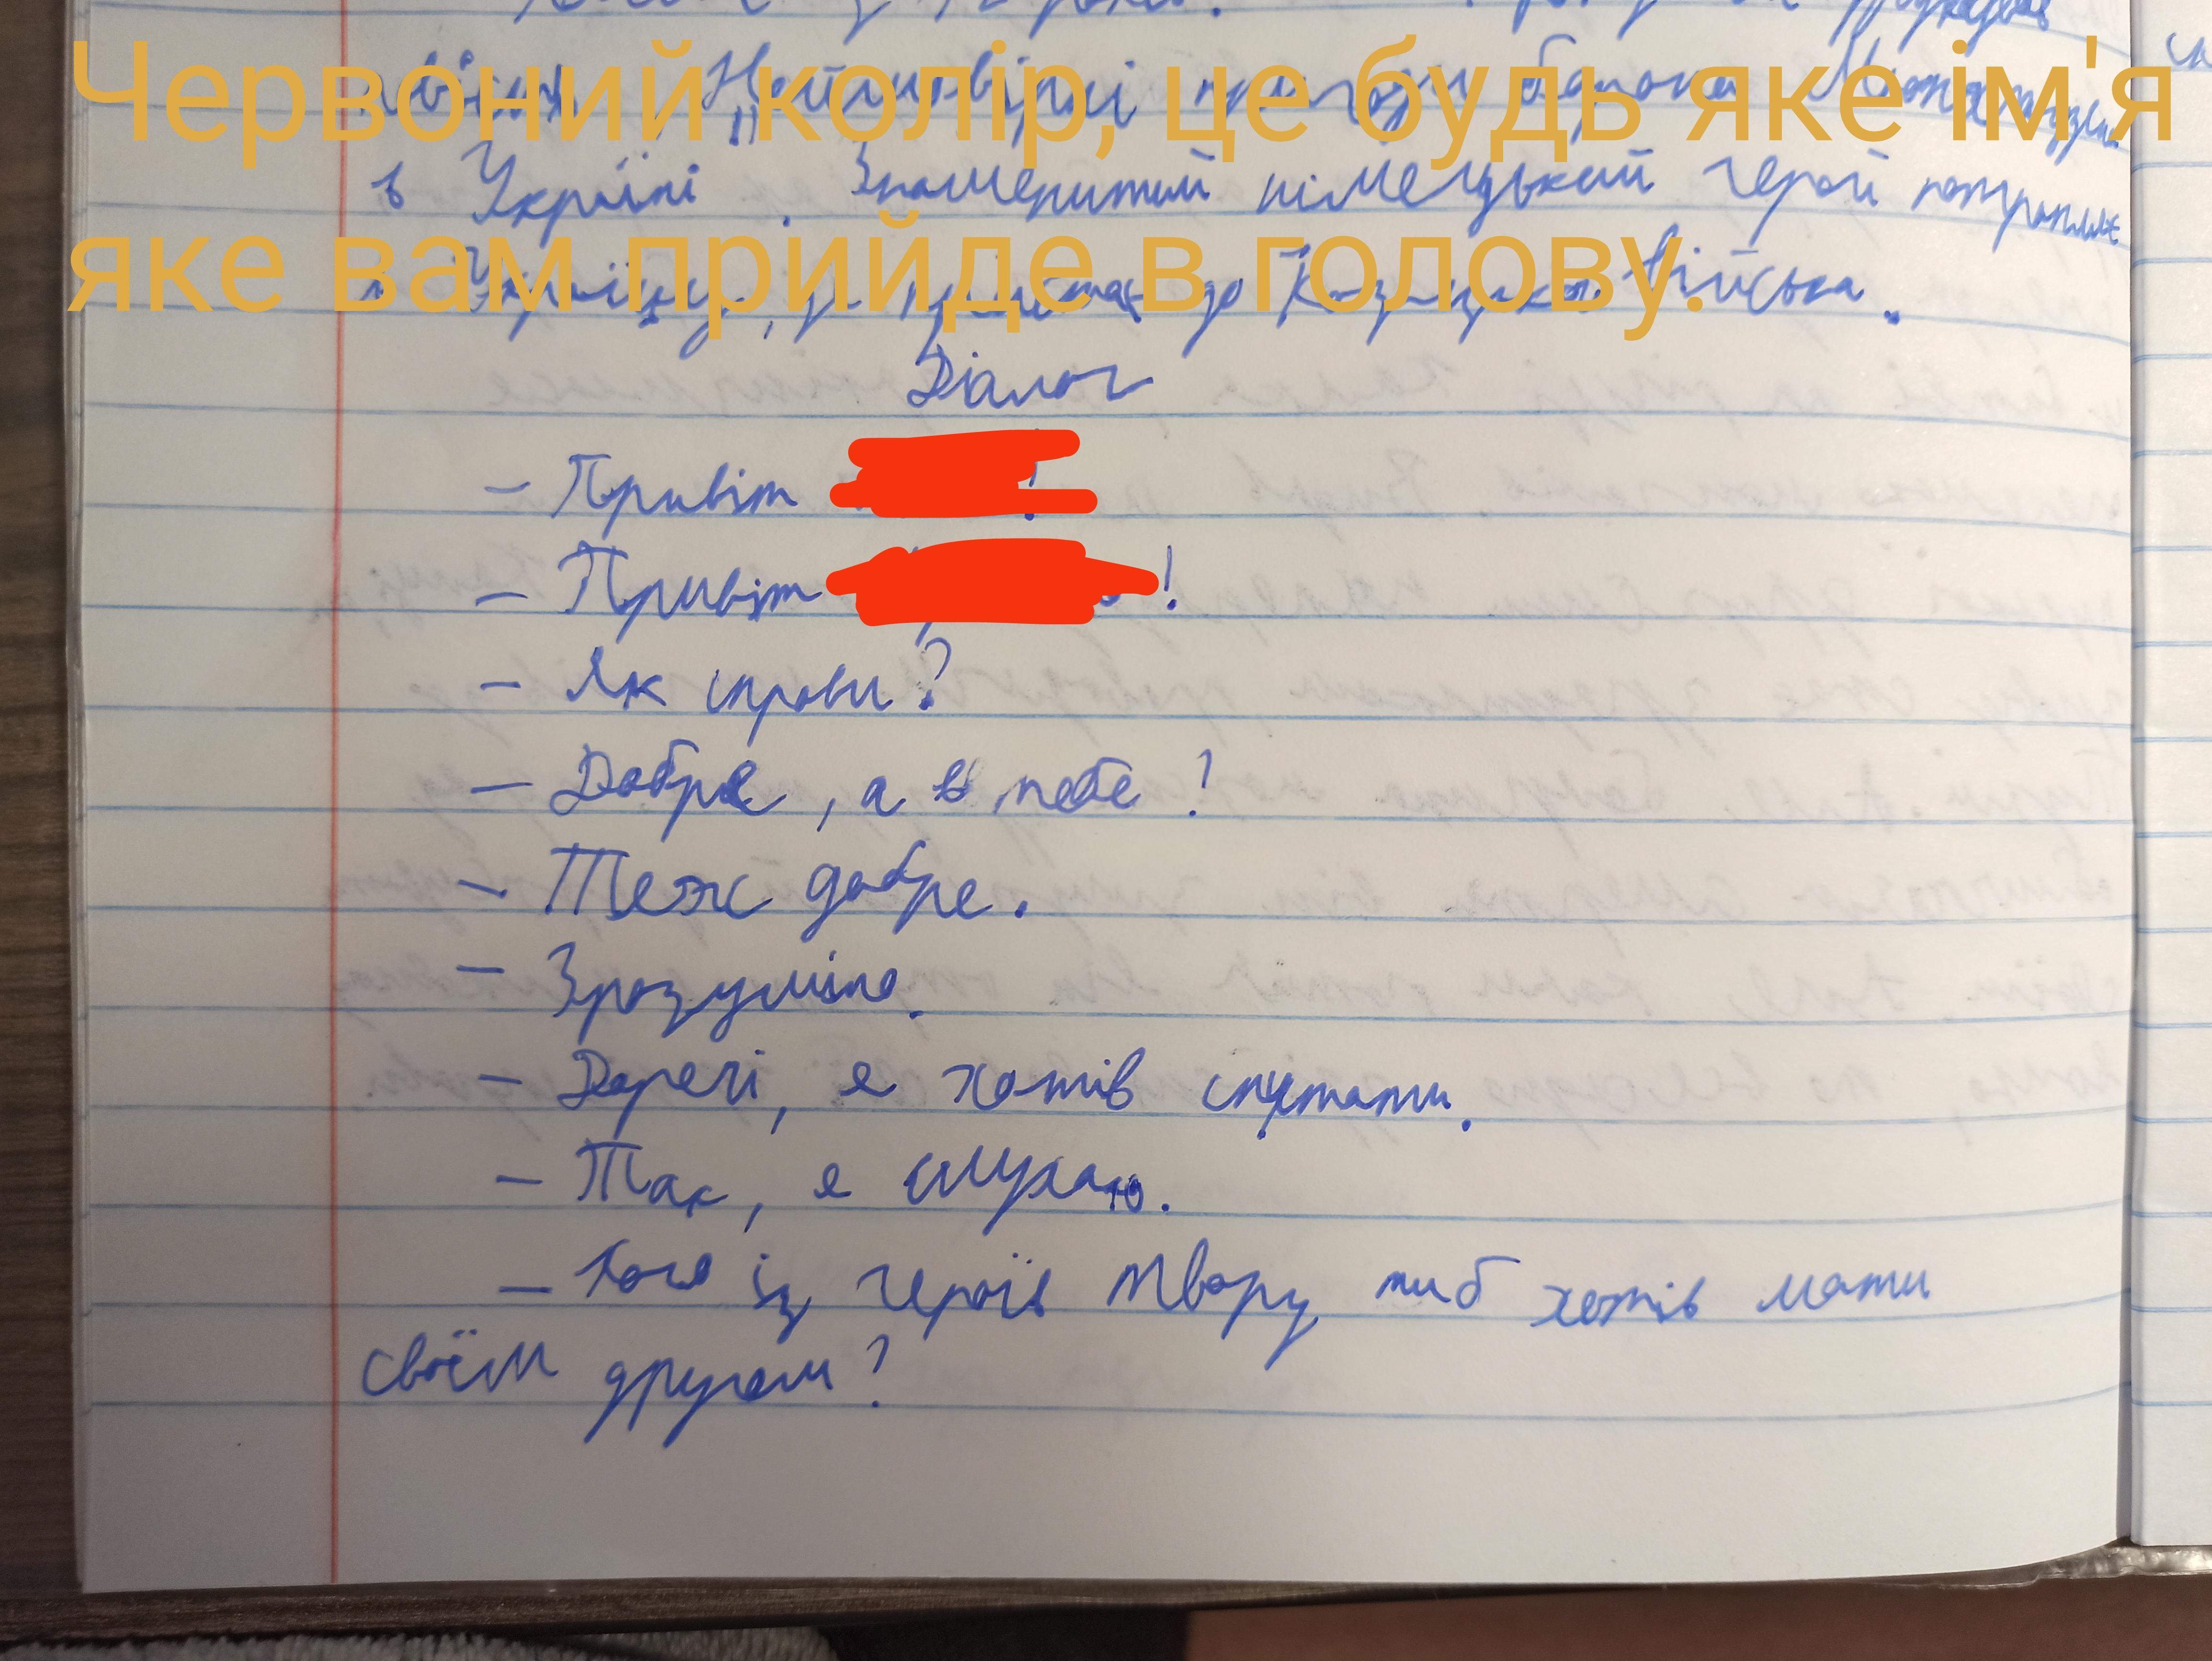 Червоний колір, це будь яке ім'я
яке вам прийде в голову.
в Україні". Знаменитий німецький герой потрапляє
в Україну, де пристає до Козацького війська.
Діалог
– Привіт !
– Привіт !
– Як справи?
– Добре, а в тебе?
– Теж добре.
– Зрозуміло.
– Доречі, я хотів спитати.
– Так, я слухаю.
– Кого із героїв твору ти б хотів мати
своїм другом?